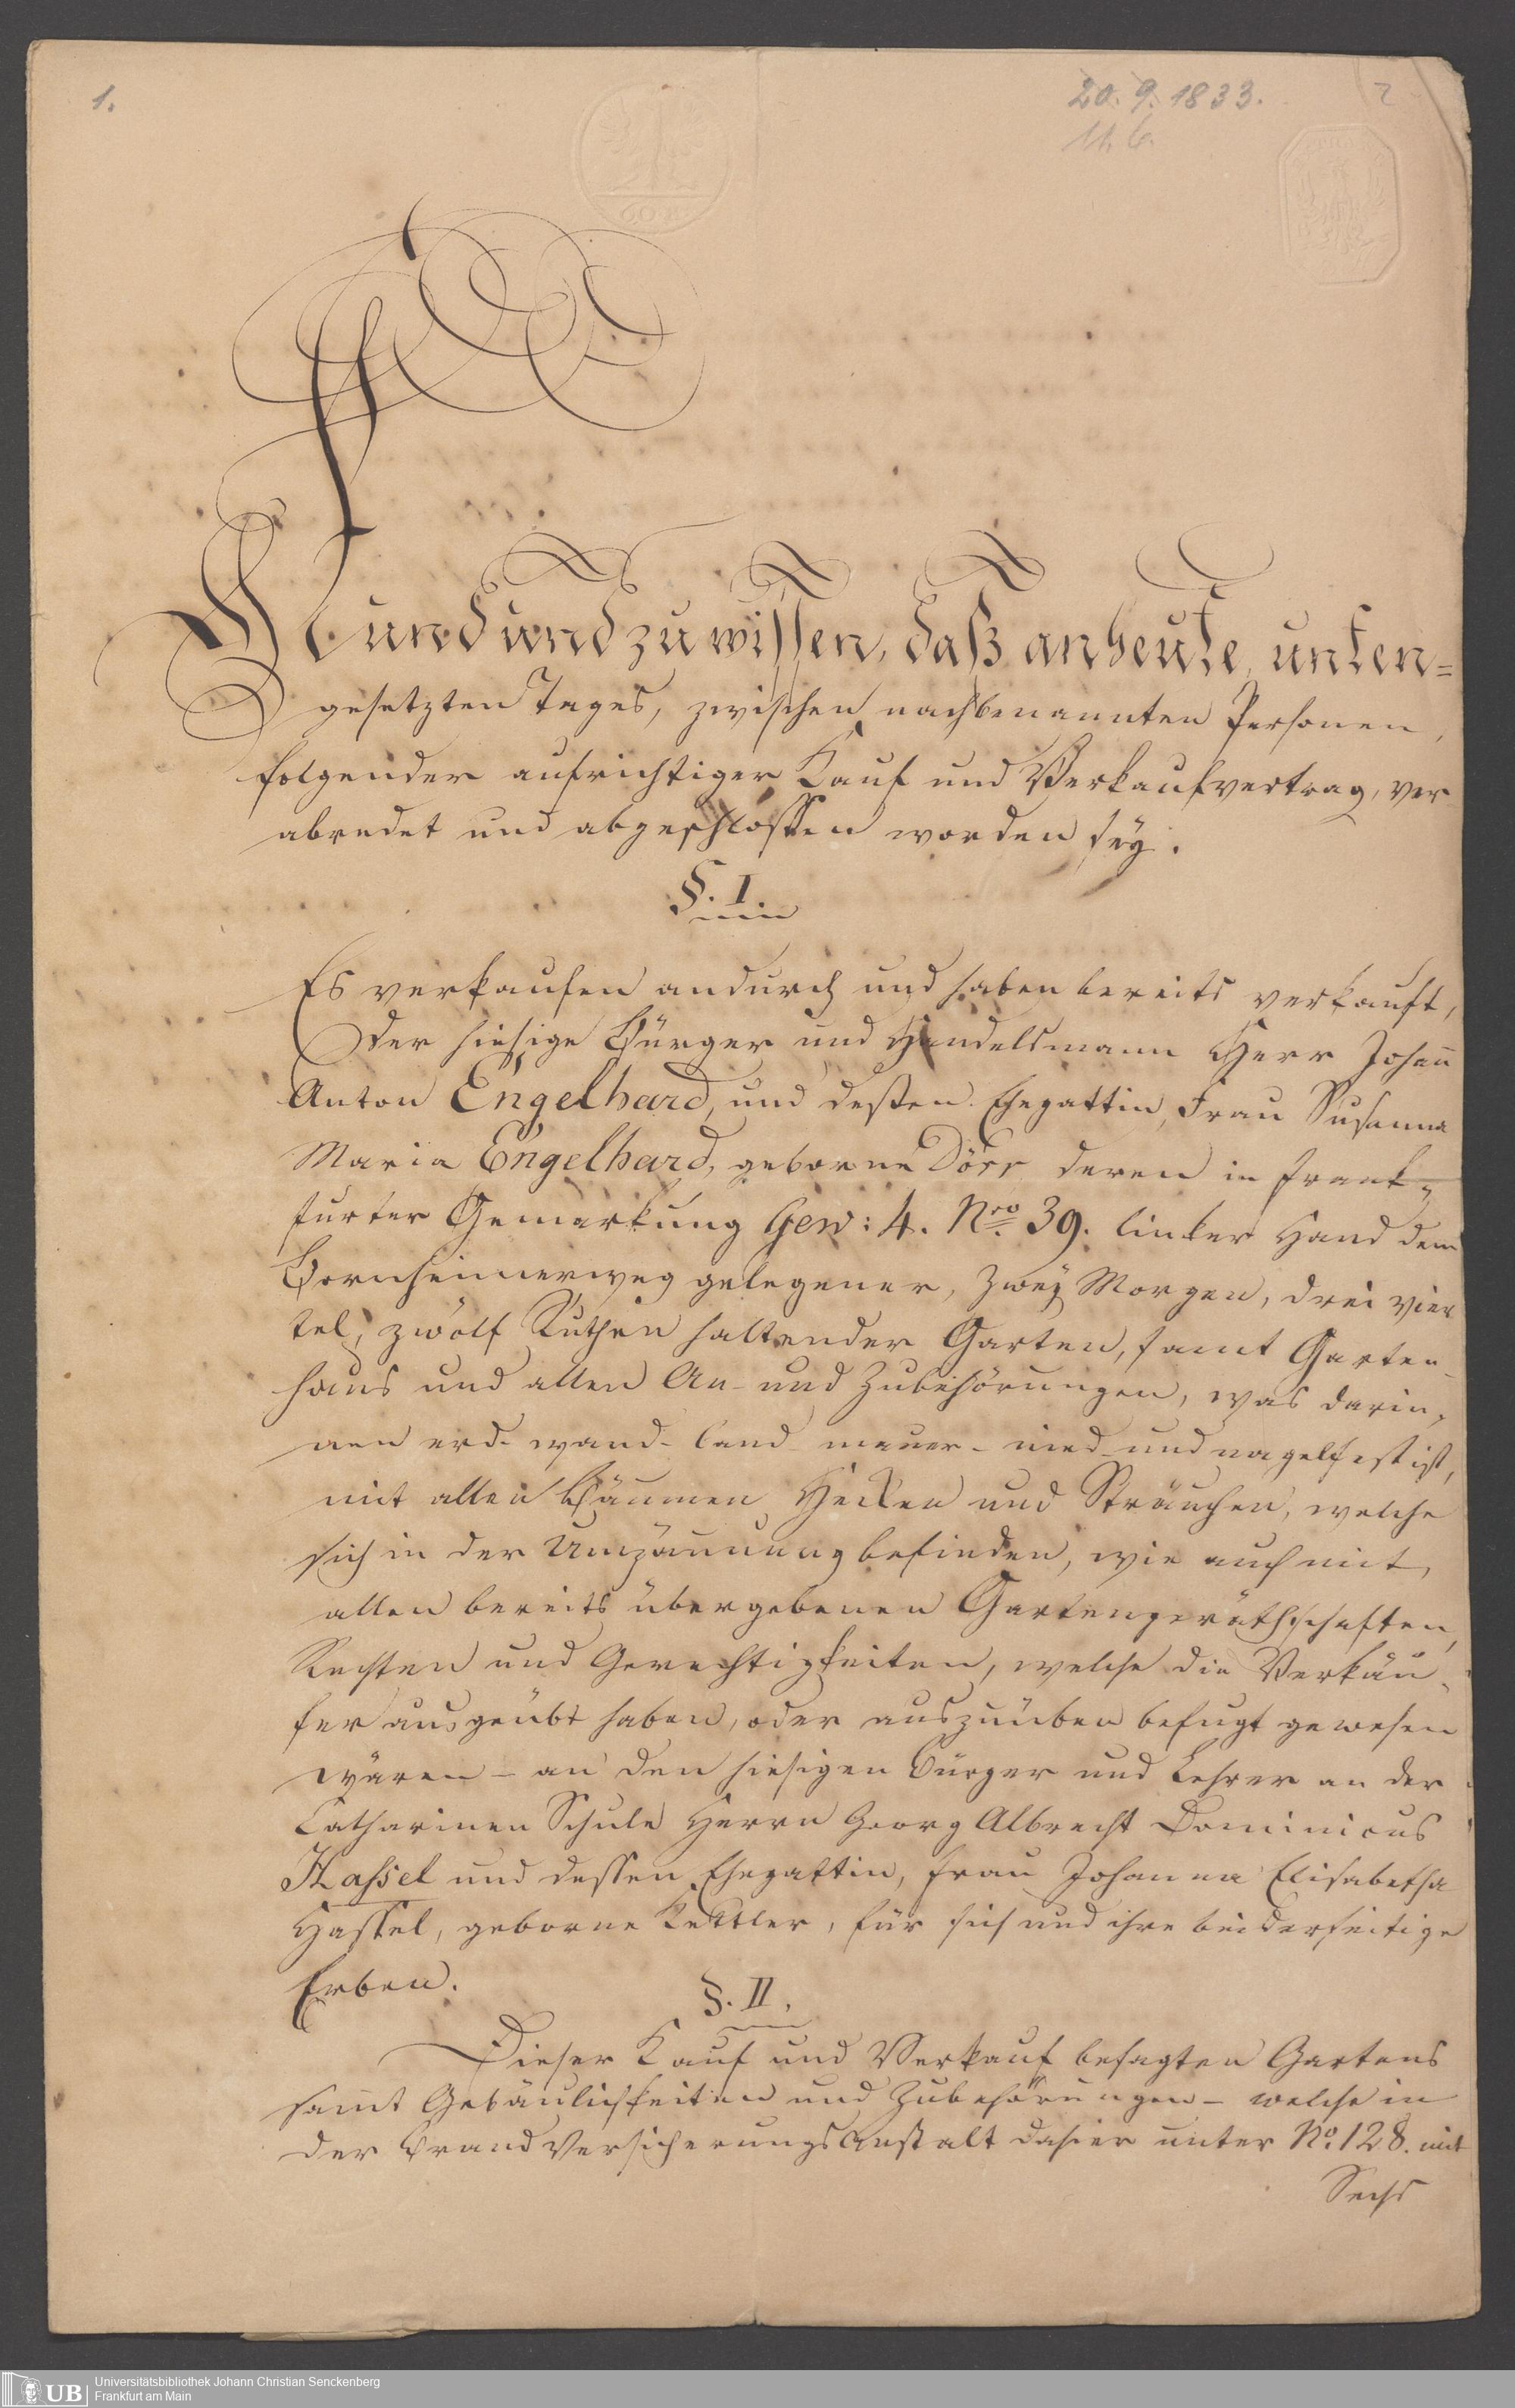 1.
20. 9. 1833.
2
11. 6.
60 K
Kund und zu wissen, daß anheute, unten=
gesetzten Tages, zwischen nachbenannten Personen,
folgender aufrichtiger Kauf und Verkaufvertrag, ver
abredet und abgeschlossen worden sey:
§. I.
Es verkaufen andurch und haben bereits verkauft,
Der hiesige Bürger und Handelsmann Herr Johann
Anton Engelhard, und dessen Ehegattin, Frau Susanna
Maria Engelhard, geborne Dörr deren in Frank-
furter Gemarkung Gew: 4. Nro 39. linker Hand dem
Bornheimerweg gelegener, Zwey Morgen, drei vier
tel, zwölf Ruthen haltender Garten, samt Garten
haus und allen An- und Zubehörungen, was darin,
nen erd- wand- band- mauer- nied- und nagelfest ist,
mit allen Bäumen, Hecken und Sträuchen, welche
sich in der Umzäunung befinden, wie auch mit,
allen bereits übergebenen Gartengeräthschaften,
Rechten und Gerechtigkeiten, welche die Verkäu-
fer ausgeübt haben, oder auszuüben befugt gewesen
wären - an den hiesigen Bürger und Lehrer an der
Catharinen Schule Herrn Georg Albrecht Dominicus
Hassel und dessen Ehegattin, Frau Johanna Elisabetha
Hassel, geborne Kettler, für sich und ihre beiderseitige
Erben.
§. II.
Dieser Kauf und Verkauf besagten Gartens
samt Gebäulichkeiten und Zubehörungen - welche in
der Brand Versicherungs Anstalt dahier unter No. 128. mit
Sechs
UB
Universitätsbibliothek Johann Christian Senckenberg
Frankfurt am Main